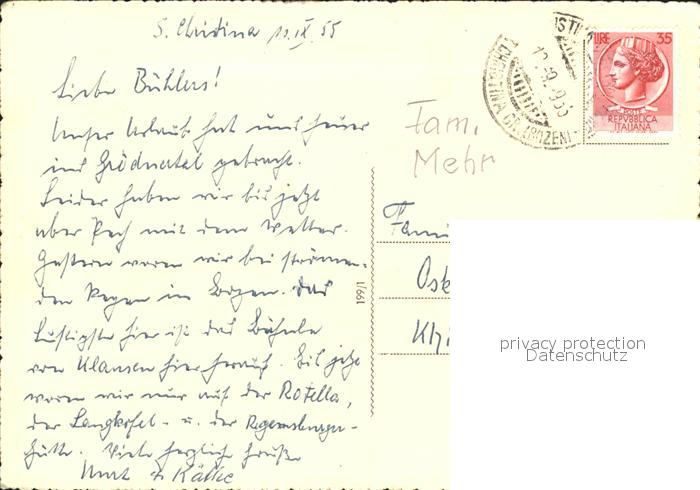 S. Christina 11.IX.55
Liebe Bühlers!
Unser Urlaub hat uns heuer
ins Grödnertal gebracht.
Leider haben wir bis jetzt
aber Pech mit dem Wetter.
Gestern waren wir bei strömen-
den Regen in Bozen. Das
Lustigste hier ist das Bähnle
von Klausen hier herauf. Bis jetzt
waren wir nur auf der Rotella,
der Langkofel- u. der Regensburger-
hütte. Viele herzliche Grüße
Kätke
Fam.
Mehr
LIRE 35
POSTE
REPVBBLICA
ITALIANA
Fami
Osk
199/1
privacy protection
Datenschutz